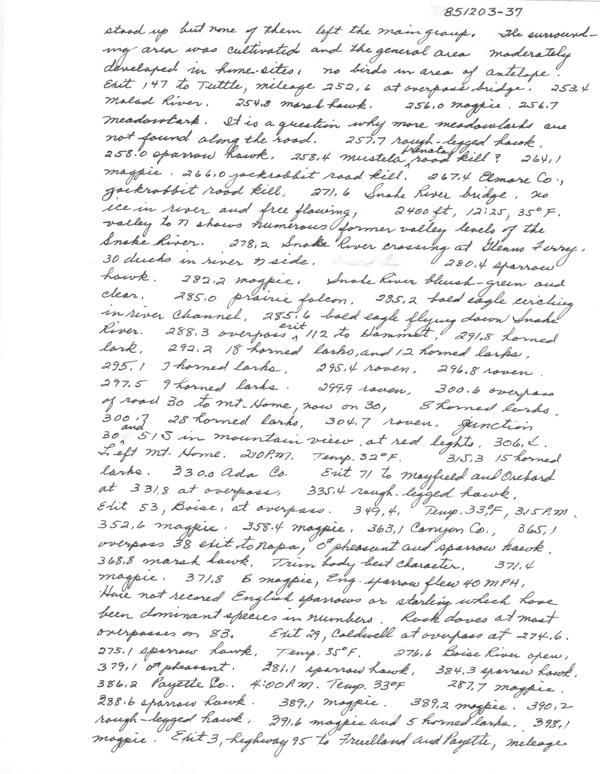 851203-37
stood up but none of them left the main group. The surround-
ing area was cultivated and the general area moderately
developed in home-sites, no birds in area of antelope.
Exit 147 to Tuttle, mileage 252.6 at overpass bridge. 253.4
Malad River. 254.8 marsh hawk. 256.0 magpie. 256.7
meadowlark. It is a question why more meadowlarks are
not found along the road. 257.7 rough-legged hawk.
258.0 sparrow hawk. 258.4 mustela frenata road kill? 264.1
magpie. 266.0 jackrabbit road kill. 267.4 Elmore Co.,
jackrabbit road kill. 271.6 Snake River bridge. no
ice in river and free flowing, 2400 ft, 12:25, 35°F.
valley to N shows numerous former valley levels of the
Snake River. 278.2 Snake River crossing at Glenns Ferry.
30 ducks in river N side. 280.4 sparrow
hawk. 282.2 magpie. Snake River bluish-green and
clear. 285.0 prairie falcon. 285.2 bald eagle circling
in river channel, 285.6 bald eagle flying down Snake
River. 288.3 overpass exit 112 to Hammet, 291.8 horned
lark, 292.2 18 horned larks, and 12 horned larks.
295.1 7 horned larks. 295.4 raven. 296.8 raven.
297.5 9 horned larks. 299.9 raven. 300.6 overpass
of road 30 to Mt. Home, now on 30, 8 horned larks.
300.7 28 horned larks, 304.7 raven. Junction
30 and 51 S in mountain view at red lights, 306.2.
Left Mt. Home. 2:10 P.M. Temp. 32°F. 315.3 15 horned
larks. 330.0 Ada Co. Exit 71 to Mayfield and Orchard
at 331.8 at overpass. 335.4 rough-legged hawk.
Exit 53, Boise, at overpass. 349.4, Temp. 33°F, 3:15 P.M.
352.6 magpie. 358.4 magpie. 363.1 Canyon Co., 365.1
overpass 38 exit to Napa, ♂ pheasant and sparrow hawk.
368.8 marsh hawk. Trim body best character. 371.4
magpie. 371.8 6 magpie, Eng. sparrow flew 40 MPH,
Have not record English sparrows or starling which have
been dominant species in numbers. Rock doves at most
overpasses on 83. Exit 29, Caldwell at overpass at 274.6.
275.1 sparrow hawk. Temp. 35°F. 276.6 Boise River open,
379.1 ♂ pheasant. 281.1 sparrow hawk. 384.3 sparrow hawk.
386.2 Payette Co.. 4:00 P.M. Temp. 33°F 287.7 magpie.
288.6 sparrow hawk. 389.1 magpie. 389.2 magpie. 390.2
rough-legged hawk. 291.6 magpie and 5 horned larks. 398.1
magpie. Exit 3, highway 95 to Fruitland and Payette, mileage